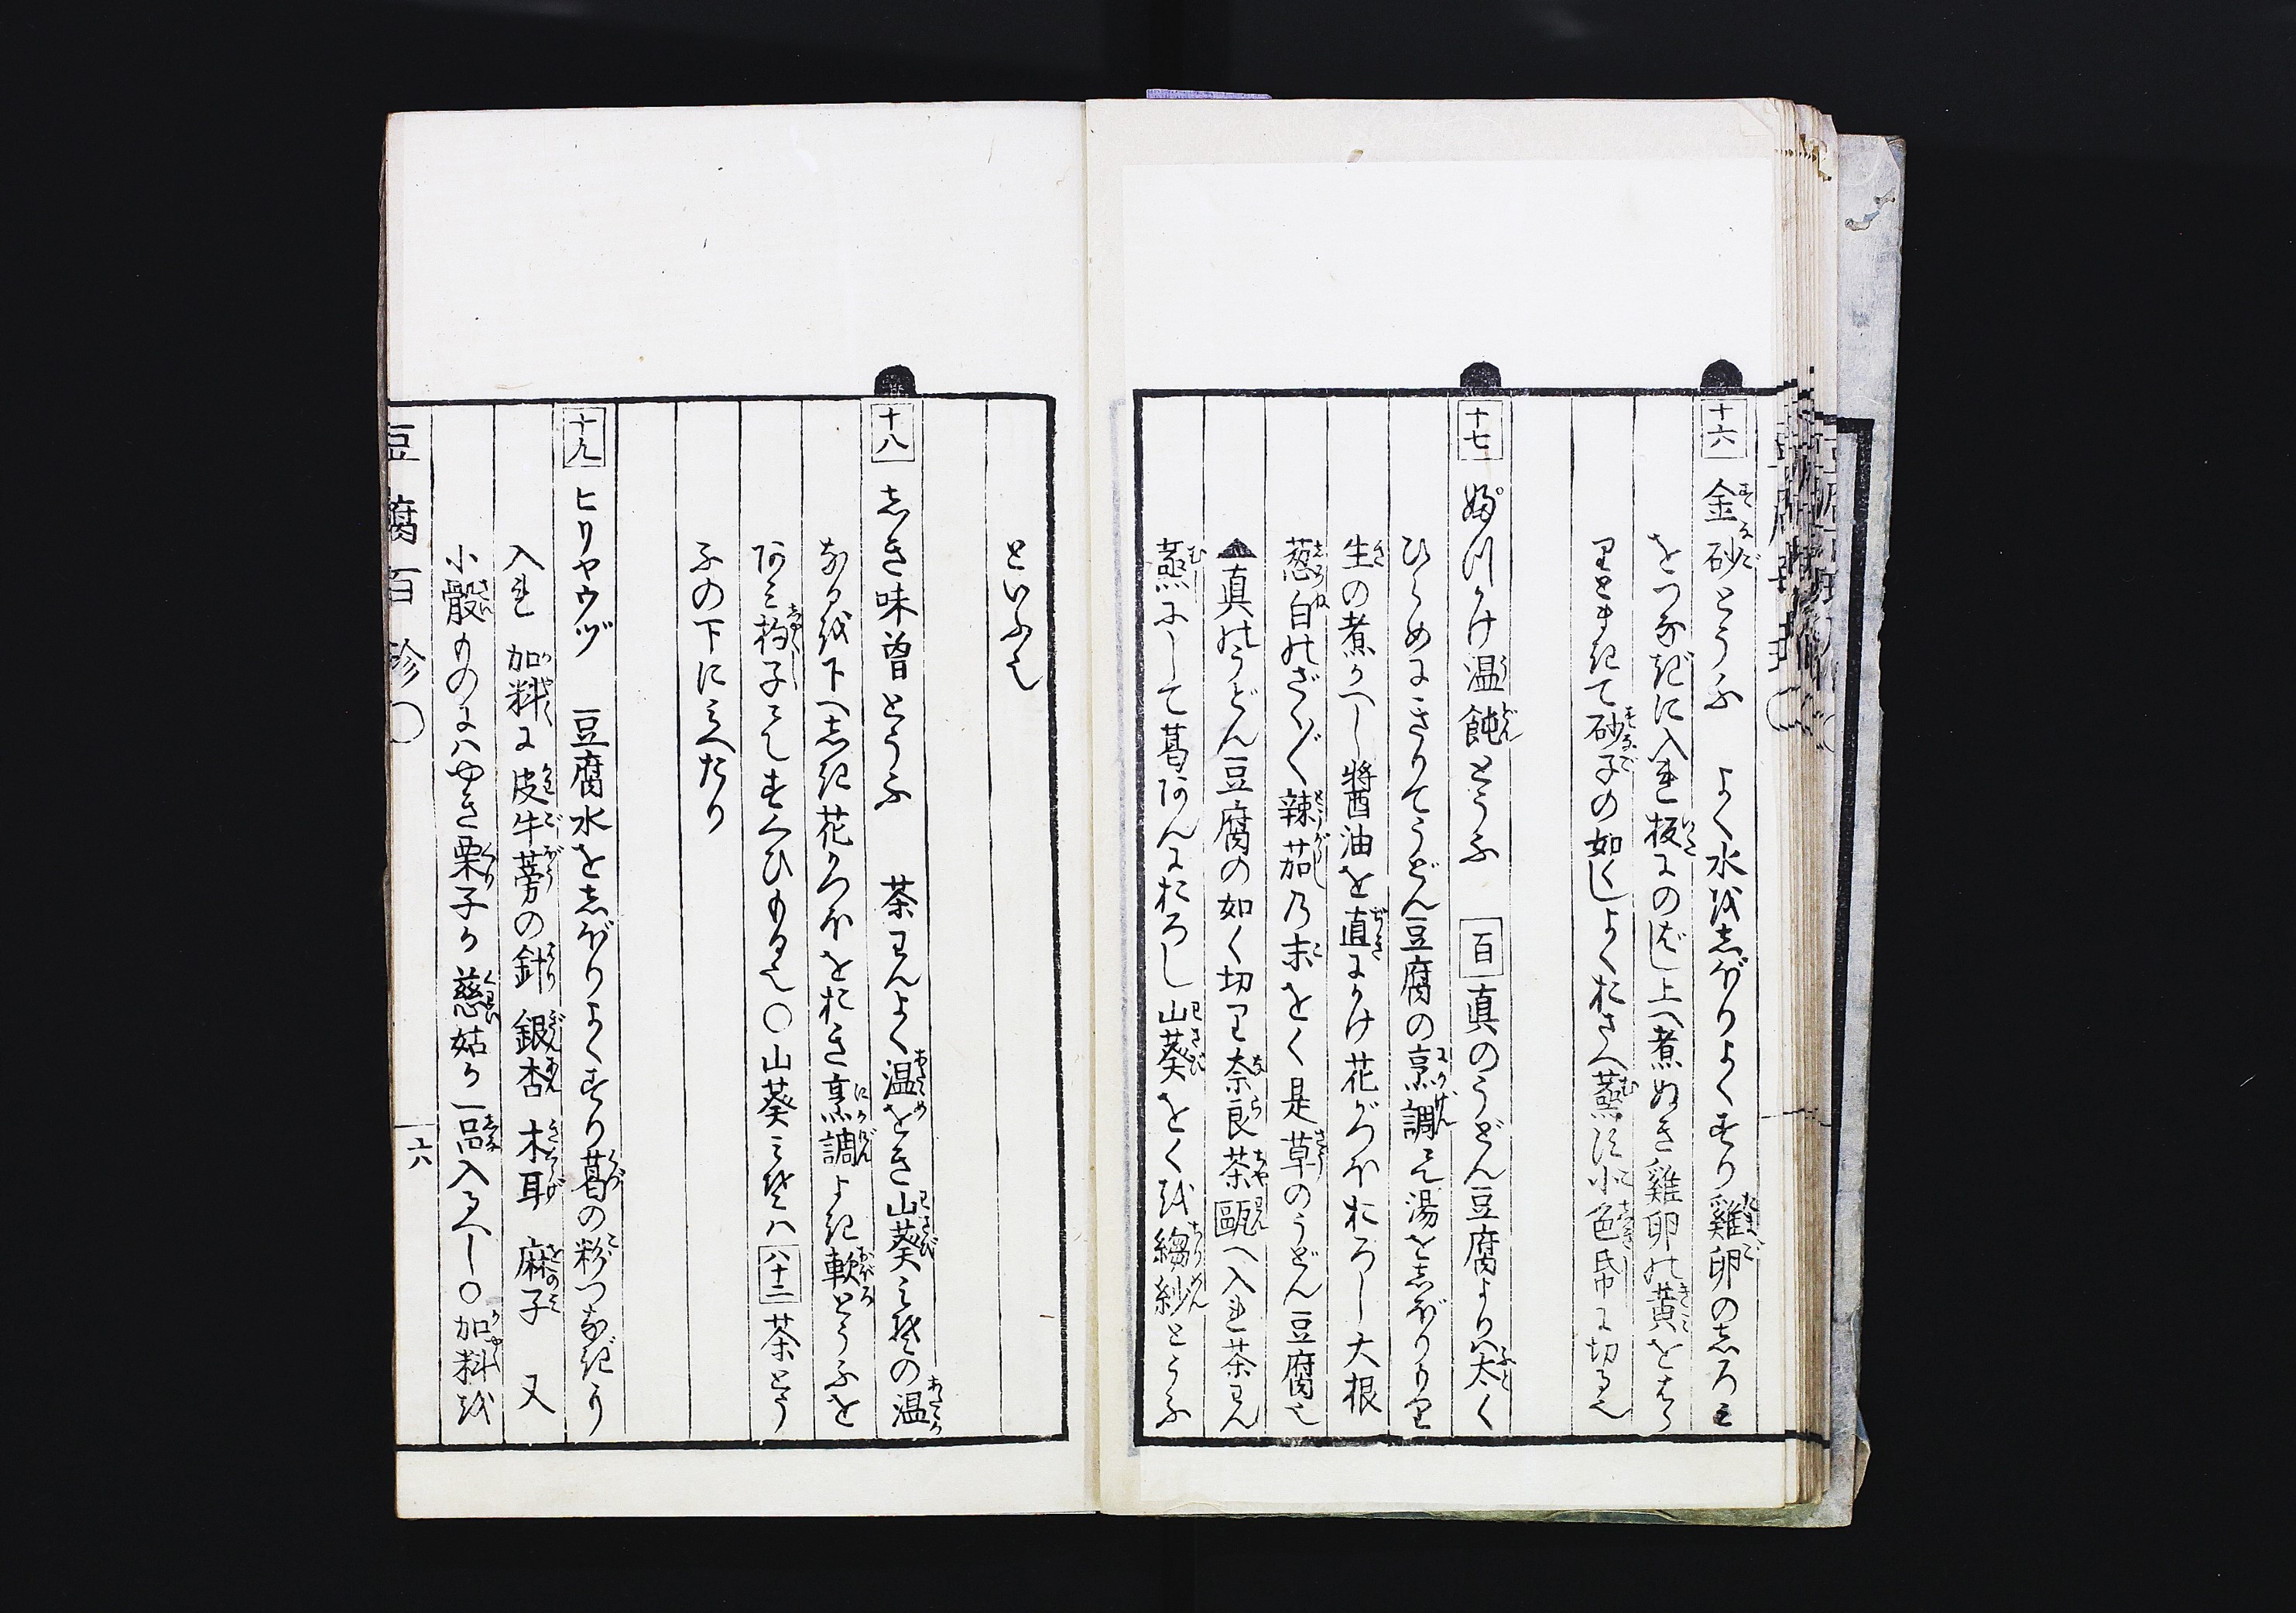 十六 金砂とうふ よく水をしぼりよくすり雞卵のしろミ
をつなぎに入れ板にのばし上へ煮ぬき雞卵の黄をふ
りときて砂子の如くしよくおさへ蒸て小色帋に切る也
十七 ぶつかけ温飩とうふ 百 真のうどん豆腐よりハ太く
ひらめにきりてうどん豆腐の烹調にて湯をしぼりもり
生の煮かへし醤油を直にかけ花がつほおろし大根
葱白のざく〱辣茄の末をく是草のうどん豆腐也
▲真のうどん豆腐の如く切り奈良茶甌へ入れ茶わん
蒸にして葛あんにおろし山葵をくを縐紗とうふ
といふ也
十八 しき味曽とうふ 茶わんよく温めをき山葵ミその温
なるを下へしき花かつほをおき烹調よき軟とうふを
あミ杓子にてすくひもる也〇山葵ミそハ八十二茶とう
ふの下にミへたり
十九 ヒリヤウヅ 豆腐水をしぼりよくすり葛の粉つなぎに
入れ 加料に皮牛蒡の針 銀杏 木耳 麻子 又
小骰ものにハやき栗子か慈姑か一品入るべし〇加料を
豆腐百珍〇
六